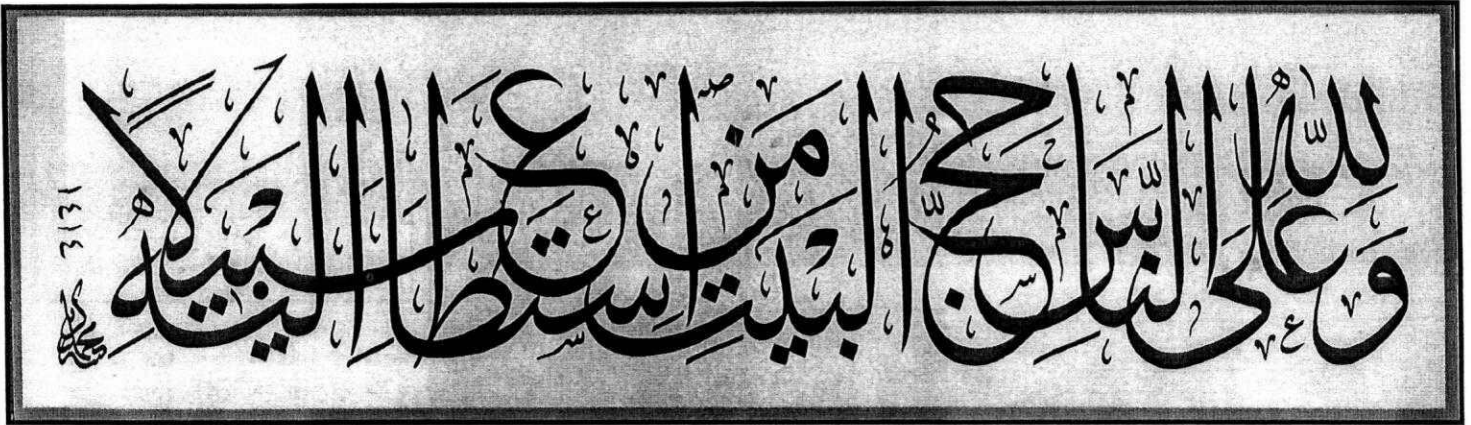 وَلِلَّهِ عَلَى النَّاسِ حِجُّ الْبَيْتِ مَنِ اسْتَطَاعَ إِلَيْهِ سَبِيلًا